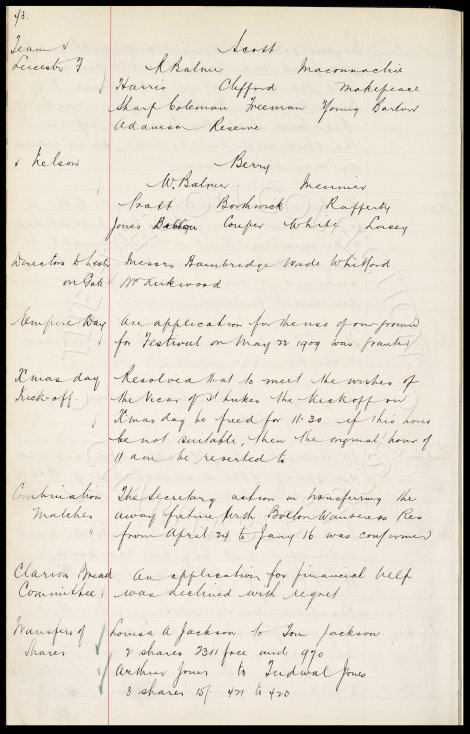 43.
Team v Scott
Leicester F R Balmer Maconnachie
Harris Clifford Makepeace
Sharp Coleman Freeman Young Barlow
Adamson Reserve
v Nelson Berry
W Balmer Meunier
Pratt Borthwick Rafferty
Jones Couper White Lacey
Directors to Leicester Messrs Bainbridge Wade Whitford
on Gate Mr Kirkwood
Empire Day An application for the use of our ground
for Festival on May 22 1909 was granted
Xmas day Resolved that to meet the wishes of
Kick-off. the Vicar of St Lukes the kick off on
Xmas day be fixed for 11-30 if this hour
be not suitable, then the original hour of
11 am be reverted to
Combination The Secretary action in transferring the
Matches away fixture with Bolton Wanderers Res
from April 24 to Jany 16 was confirmed
Clarion Bread An application for financial help
Committee was declined with regret
Transfers of Louisa A Jackson to Tom Jackson
Shares 2 shares 2311 free and 970
Arthur Jones to Tudwal Jones
3 shares 15/ 421 to 423